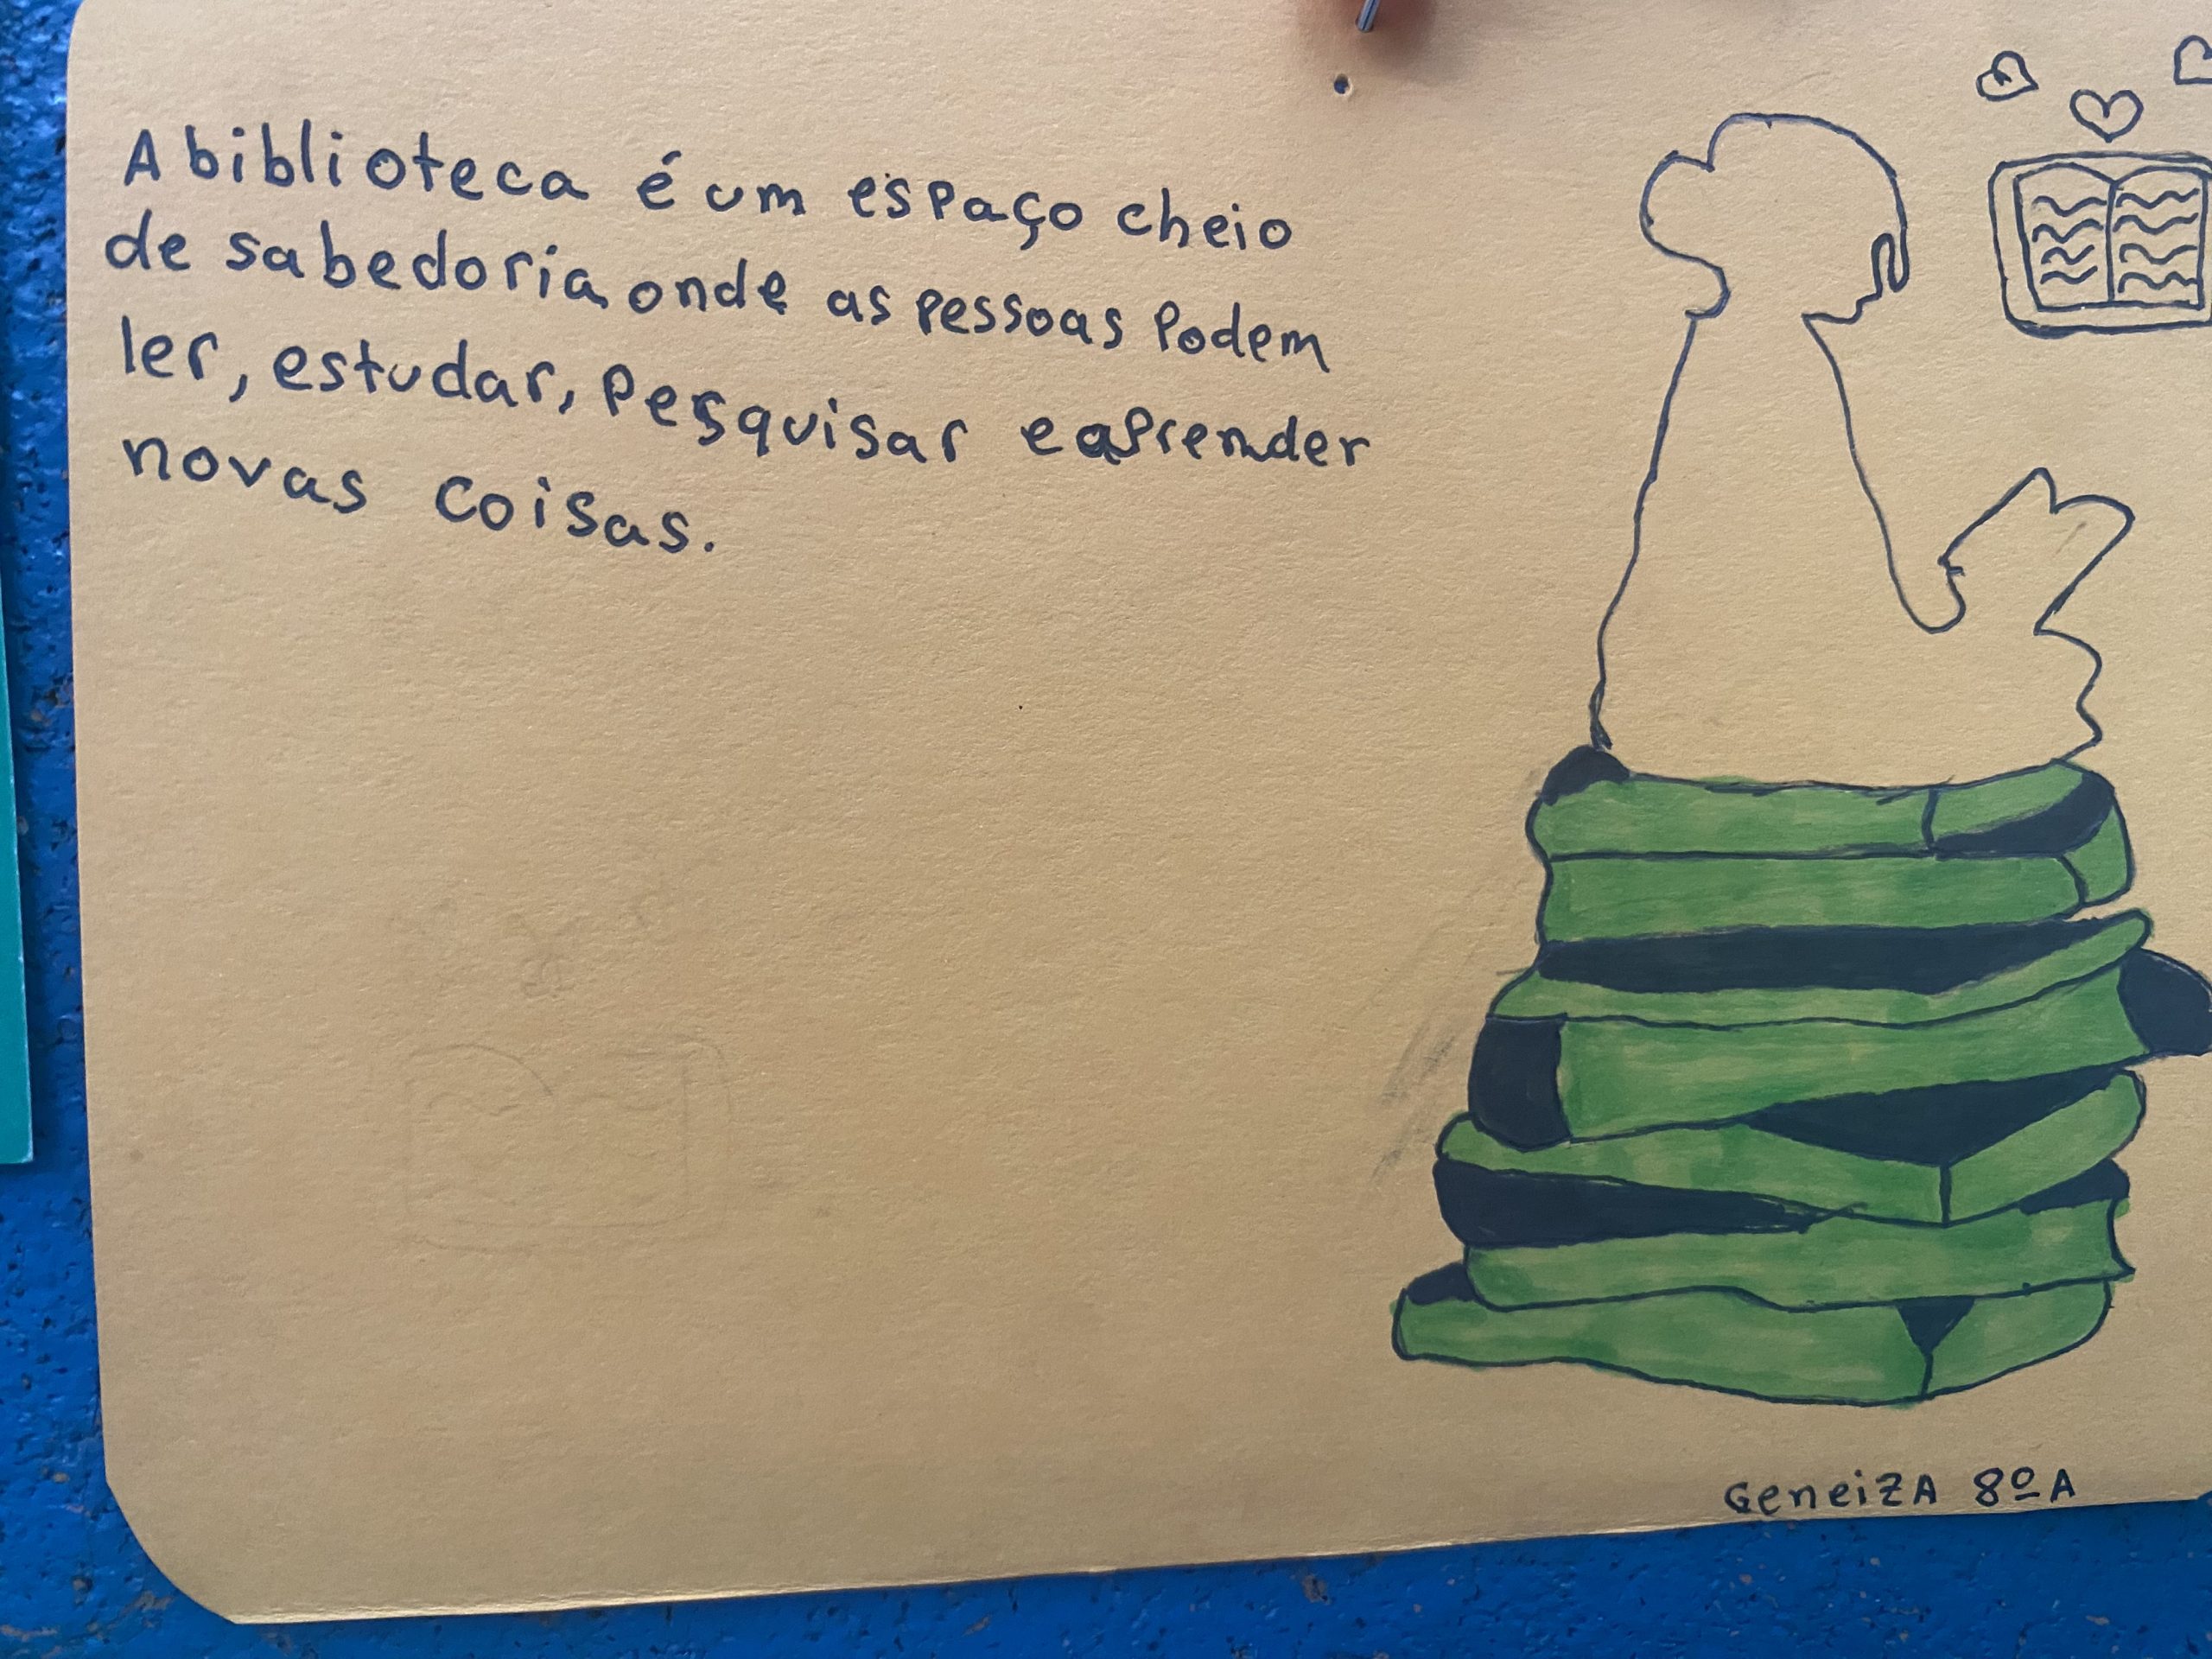 A biblioteca é um espaço cheio
de sabedoria onde as pessoas podem
ler, estudar, pesquisar e aprender
novas coisas.
GeneizA 8º A